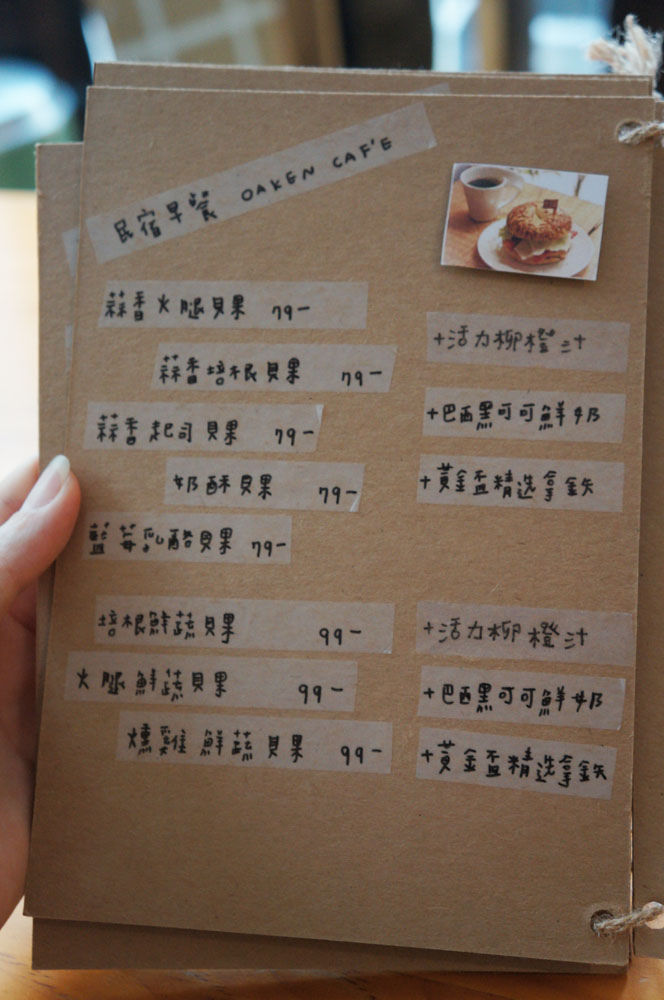 民宿早餐 OAKEN CAF'E
蒜香火腿貝果 79-
蒜香培根貝果 79-
蒜香起司貝果 79-
奶酥貝果 79-
藍莓乳酪貝果 79-
+活力柳橙汁
+巴西黑可可鮮奶
+黃金盃精选拿鉄
培根鮮蔬貝果 99-
火腿鮮蔬貝果 99-
燻雞鮮蔬貝果 99-
+活力柳橙汁
+巴西黑可可鮮奶
+黃金盃精选拿鉄